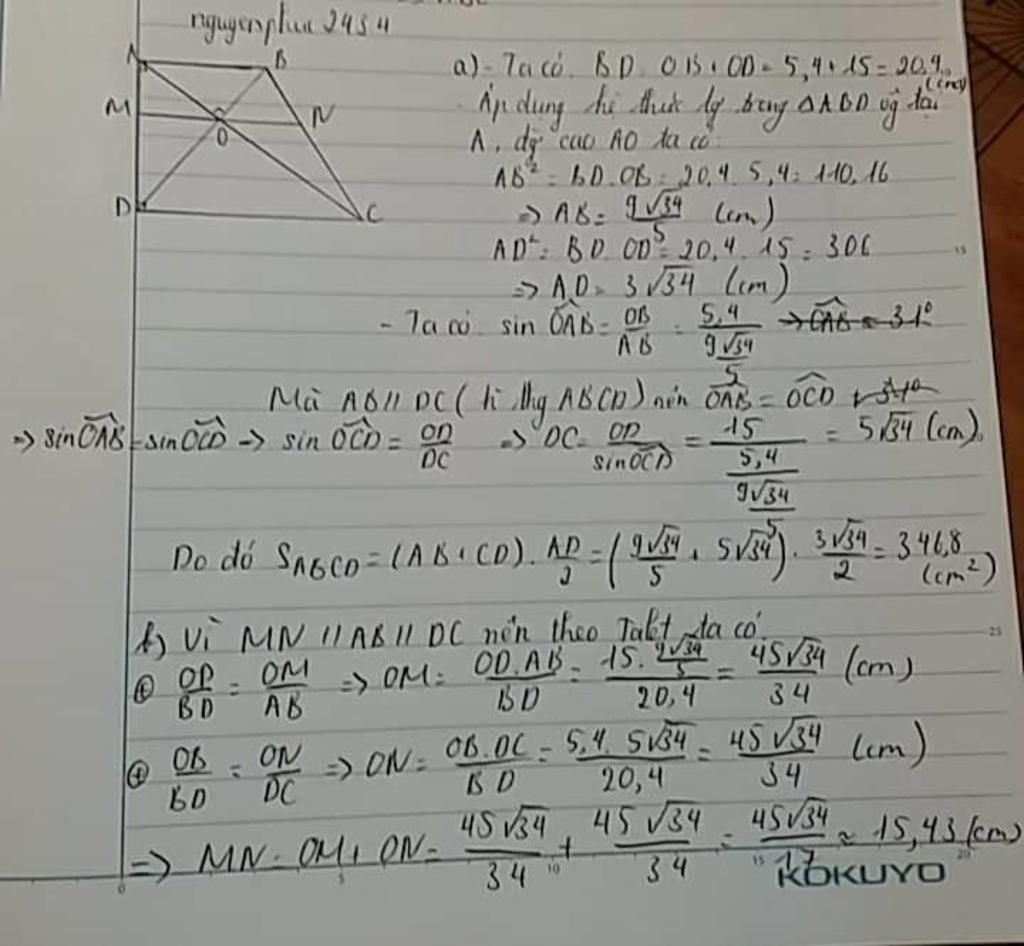 nguyenphuc2434
A B
M N
O
D C
a) - Ta có BD = OB + OD = 5,4 + 15 = 20,4 (cm)
Áp dụng hệ thức lg trong ΔABD vg tại
A, đg cao AO ta có:
AB² = BD.OB = 20,4 . 5,4 = 110,16
=> AB = 9√34/5 (cm)
AD² = BD.OD = 20,4 . 15 = 306
=> AD = 3√34 (cm)
- Ta có sin OAB = OB/AB = 5,4/(9√34/5) → OAB = 31°
Mà AB // DC (hthg ABCD) nên OAB = OCD
=> sin OAB = sin OCD → sin OCD = OD/DC => DC = OD/sin OCD = 15/(5,4/(9√34/5)) = 5√34 (cm)
Do đó S_ABCD = (AB + CD) . AD/2 = (9√34/5 + 5√34) . 3√34/2 = 346,8 (cm²)
b) Vì MN // AB // DC nên theo Talet ta có
⊕ OD/BD = OM/AB => OM = OD.AB/BD = (15 . 9√34/5)/20,4 = 45√34/34 (cm)
⊕ OB/BD = ON/DC => ON = OB.DC/BD = 5,4 . 5√34/20,4 = 45√34/34 (cm)
=> MN = OM + ON = 45√34/34 + 45√34/34 = 45√34/17 ≈ 15,43 (cm)
KOKUYO